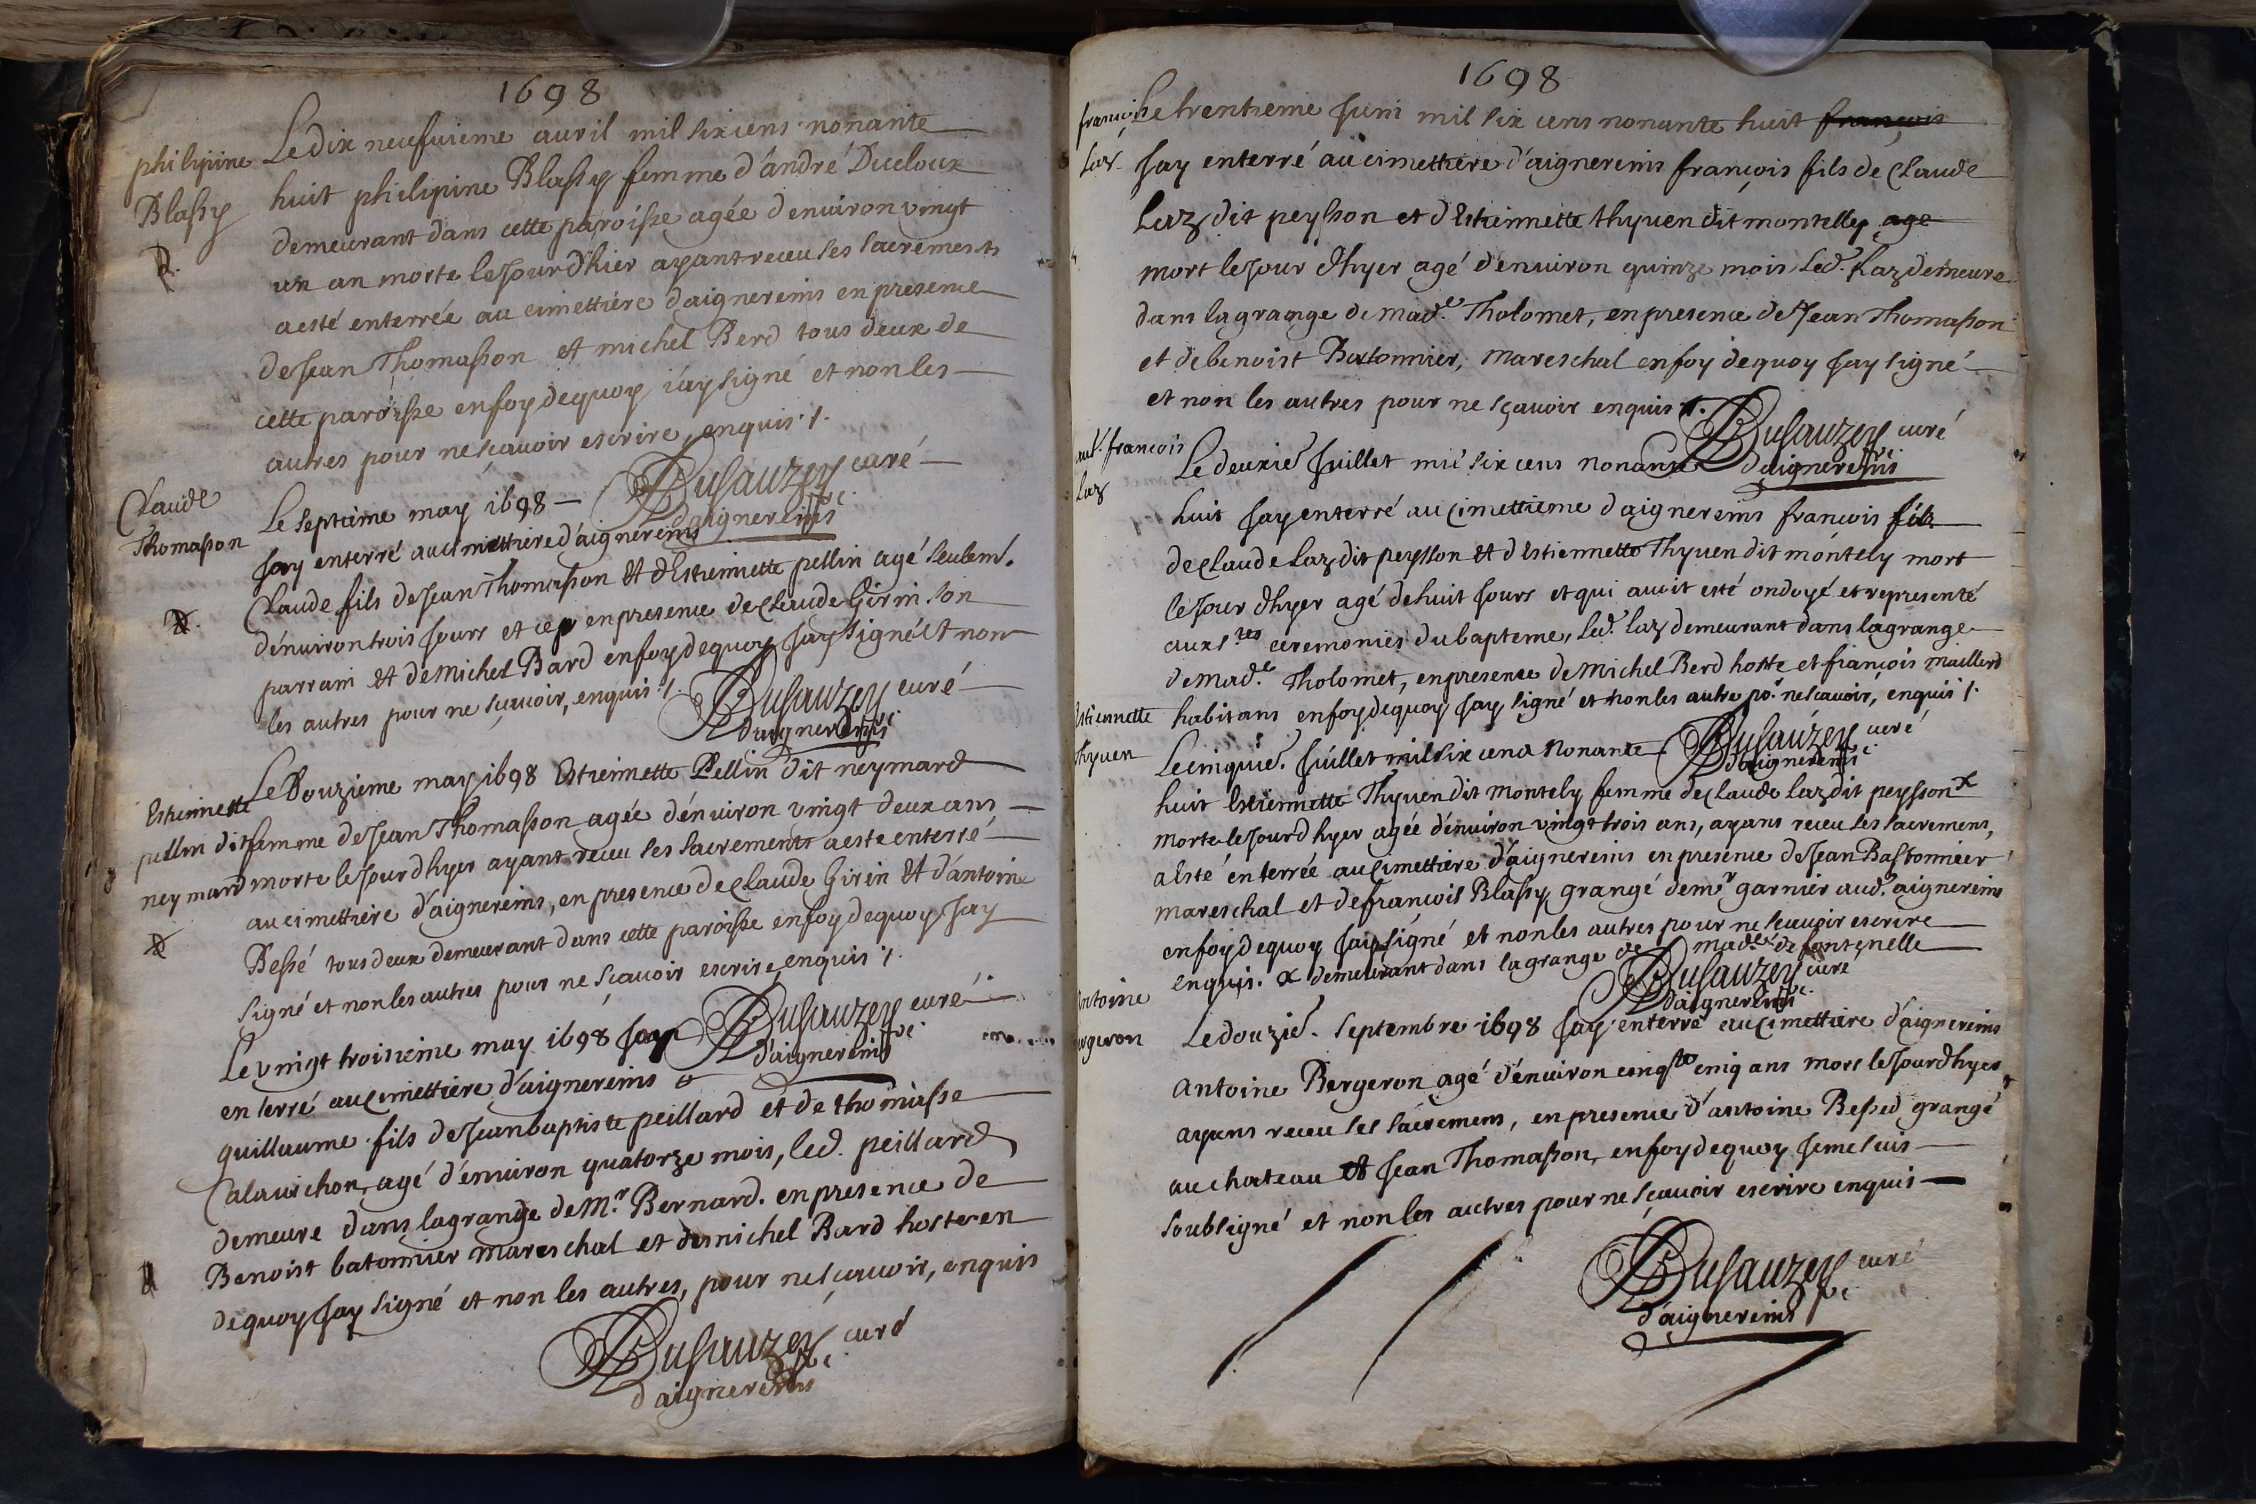 1698
philipine
Blassy
Le dix neufvieme auvril mil six cens nonante
huit philipine Blassy femme d'andré Duceloux
demeurant dans cette paroisse agée d'environ vingt
un an morte le Jour d'hier ayant receu ses sacrements
a esté enterrée au cimettiére d'aignereins en présence
de Jean Thomasson et michel Berd tous deux de
cette paroisse en foy de quoy j'ay signé et non les
autres pour ne sçavoir escrire, enquis ·/.
Dusauzey curé
d'aignereins
Claude
Thomasson
Le septiéme may 1698
Jay enterré au cimettiére d'aignereins
Claude fils de Jean Thomasson et d'Estiennette pellin agé seulem.t
d'environ trois Jours et ce en presence de Claude Girin son
parrain et de Michel Bard en foy de quoy Jay signé et non
les autres pour ne sçavoir, enquis ·/.
Dusauzey curé
d'aignereins
Estiennette
pellin dit
neymard
Le Douziéme may 1698 Estiennette Pellin dit neymard
femme de Jean Thomasson agée d'environ vingt deux ans
morte le Jour d'hyer ayant receu ses sacrements a esté enterré
au cimettiére d'aignereins, en presence de Claude Girin et d'antoine
Bessé tous deux demeurant dans cette paroisse en foy de quoy Jay
signé et non les autres pour ne sçavoir escrire, enquis ·/.
Dusauzey curé
d'aignereins
Le vingt troisieme may 1698 Jay
enterré au cimettiére d'aignereins
guillaume fils de Jean baptiste peillard et de thomasse
Calavichon, agé d'environ quatorze mois, led. peillard
demeure dans la grange de M.r Bernard. en presence de
Benoist batonnier mareschal et de michel Bard hoste en
de quoy Jay signé et non les autres, pour ne sçavoir, enquis
Dusauzey curé
d'aignereins
1698
françois
Laz
Le trentieme Juin mil six cens nonante huit françois
Jay enterré au cimettiére d'aignereins françois fils de Claude
Laz dit peysson et d'Estiennette thyven dit montelly age
mort le Jour d'hyer agé d'environ quinze mois led. Laz demeure
dans la grange de mad.e Tholomet, en presence de Jean Thomasson
et de benoist Batonnier, mareschal en foy de quoy Jay signé
et non les autres pour ne sçavoir enquis ·/.
Dusauzey curé
d'aignereins
aut. françois
Laz
Le deuxie Juillet mil six cens nonante
huit Jay enterré au cimettieme d'aignereins françois fils
de Claude Laz dit peysson et d'Estiennette Thyven dit montely mort
le Jour d'hyer agé de huit Jours et qui avoit esté ondoyé et representé
aux s.tes ceremonies du bapteme, led. Laz demeurant dans la grange
de mad.e Tholomet, en presence de Michel Berd hoste et françois maillerd
habitans en foy de quoy Jay signé et non les autre po.r ne sçavoir, enquis ·/.
Dusauzey curé
d'aignereins
Estiennette
thyven
Le cinquie. Juillet mil six cens Nonante
huit Estiennette Thyven dit Montely femme de Claude Laz dit peysson x
morte le Jour d'hyer agée d'environ vingt trois ans, ayans receu les sacremens,
a esté enterrée au cimettiére d'aignereins en presence de Jean Bastonnier
mareschal et de françois Blassy grangé de m.r garnier aud. aignereins
en foy de quoy Jay signé et non les autres pour ne sçavoir escrire
enquis. x demeurant dans la grange de mad.e de fontenelle
Dusauzey curé
d'aignereins
antoine
Bergeron
Le douzie. septembre 1698 Jay enterré au cimettiére d'aignereins
antoine Bergeron agé d'environ cinq.te cinq ans mort le Jour d'hyer
ayans receu ses sacremens, en presence d'antoine Bessed grangé
au chateau et Jean Thomasson, en foy de quoy Je me suis
soubsigné et non les autres pour ne sçavoir escrire enquis
Dusauzey curé
d'aignereins